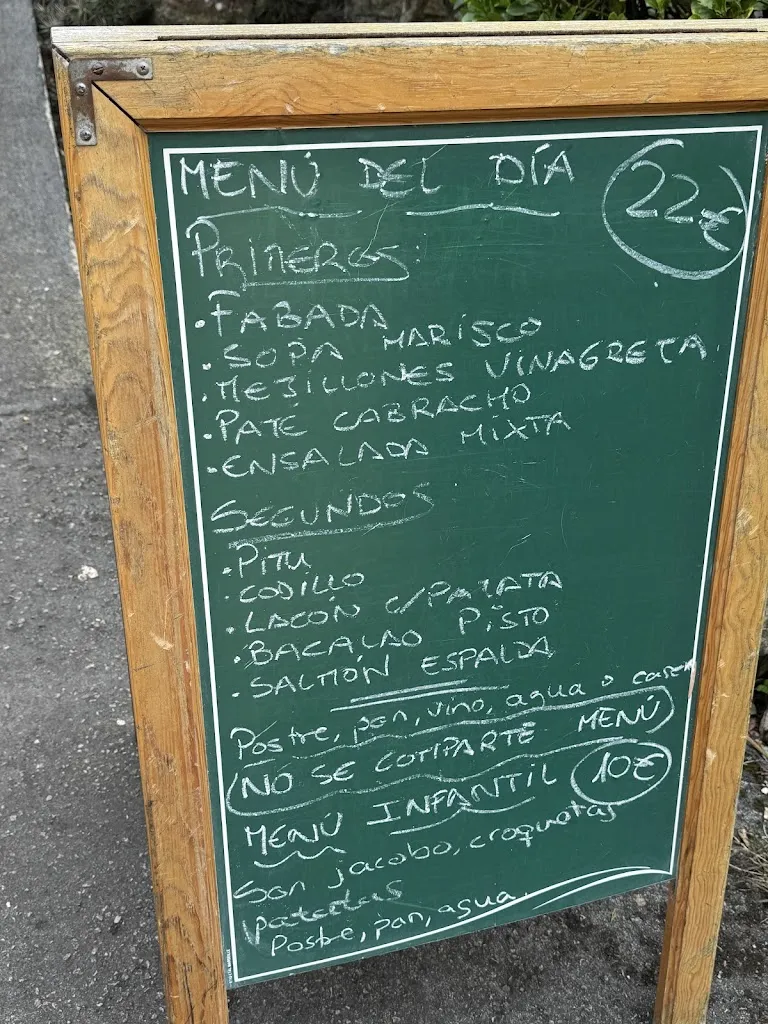 MENÚ DEL DÍA 22€
PRIMEROS:
.FABADA
.SOPA MARISCO
.MEJILLONES VINAGRETA
.PATÉ CABRACHO
.ENSALADA MIXTA
SEGUNDOS
.PITU
.CODILLO
.LACÓN C/PATATA
.BACALAO PISTO
.SALMÓN ESPALDA
Postre, pan, vino, agua o caser
NO SE COMPARTE MENÚ
MENÚ INFANTIL 10€
San jacobo, croquetas
patatas
Postre, pan, agua.